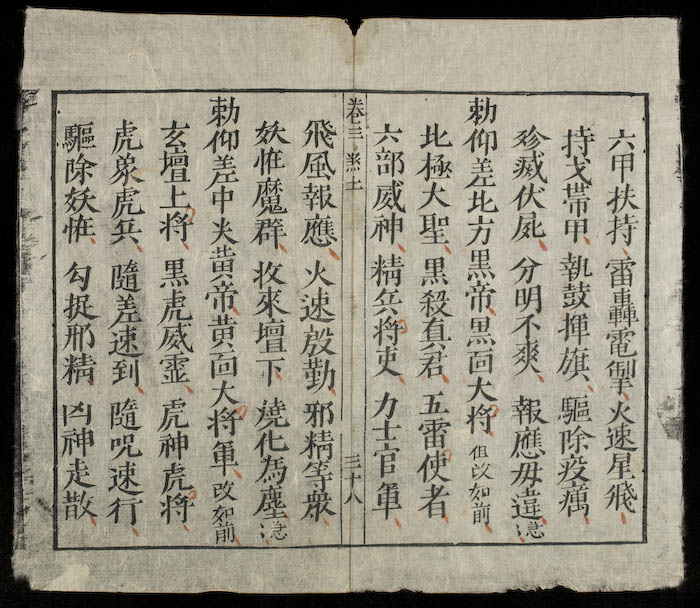 六甲扶持、雷轟電掣、火速星飛、
持戈帶甲、執鼓揮旗、驅除疫癘、
殄滅伏屍、分明不爽、報應毋違、急
勅仰差北方黑帝、黑面大將 但改如前
北極大聖、黑殺真君、五雷使者
六部威神、精兵將吏、力士官軍
卷三 煞土 三十八
飛風報應、火速殷勤、邪精等衆、
妖恠魔群、收來壇下、燒化為塵、急
勅仰差中央黃帝黃面大將軍 改如前
玄壇上將、黑虎威靈、虎神虎將
虎象虎兵、隨差速到、隨咒速行、
驅除妖恠、勾捉邪精 凶神走散、